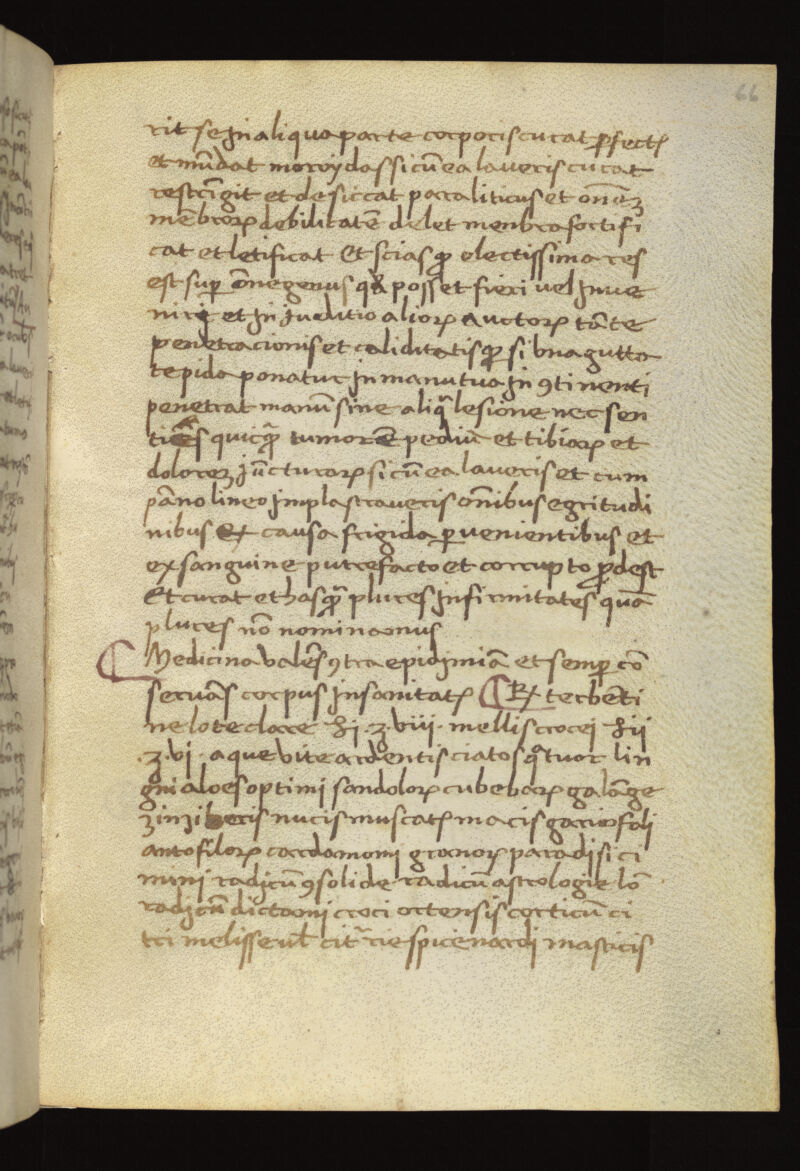 66
rit se in aliqua parte corporis curat ꝑfectꝭ
et mūdat moroydas si cū ea laueris curat
restrīgit et desiccat paraliticus et om̄eȝ
mēbroꝝ debilitatē delet menbra fortifi
cat et letificat Et scias ꝙ electissima res
est suꝑ om̄e genus posset fieri uel inue
niri et in iuditio alioꝝ auctoꝝ tāte
penetracionis et caliditatis ꝙ si una gutta
tepida ponatur in manu tua in ꝯtinenti
penetrat manū sine aliq̄ lesione nec sen
ties quicq̄ tumorē pediū et tibiaꝝ et
doloreȝ iūcturaꝝ si cū ea laueris et cum
pāno lineo implastraueris om̄ibus egritudi
nibus ex causa frigida ꝑuenientibus et
ex sanguine putrefacto et corrupto ꝓdest
Et curat et has q̄ plures infirmitates quā
plures nō nominamus
Medicina valēs ꝯtra epidimiā et semꝑ cō
seruās corpus in sanitatꝭ ℞ terbēti
ne lote clare ℔i ʒ viii mellis crocei ℔ii
ʒ vi aque vite ardentis ciatos q̄tuor lin
gni aloes optimi sandoloꝝ cubebaꝝ galāge
zinziberis nucis muscatꝭ macis gariorfoli
antofiloꝝ cardamomi granoꝝ paradisi ci
mini radicū ꝯsolide radicū astrologie lō
radicū dictami croci ortensis corticū ci
tri melisse ul̄ citrarie spice nardi masticis